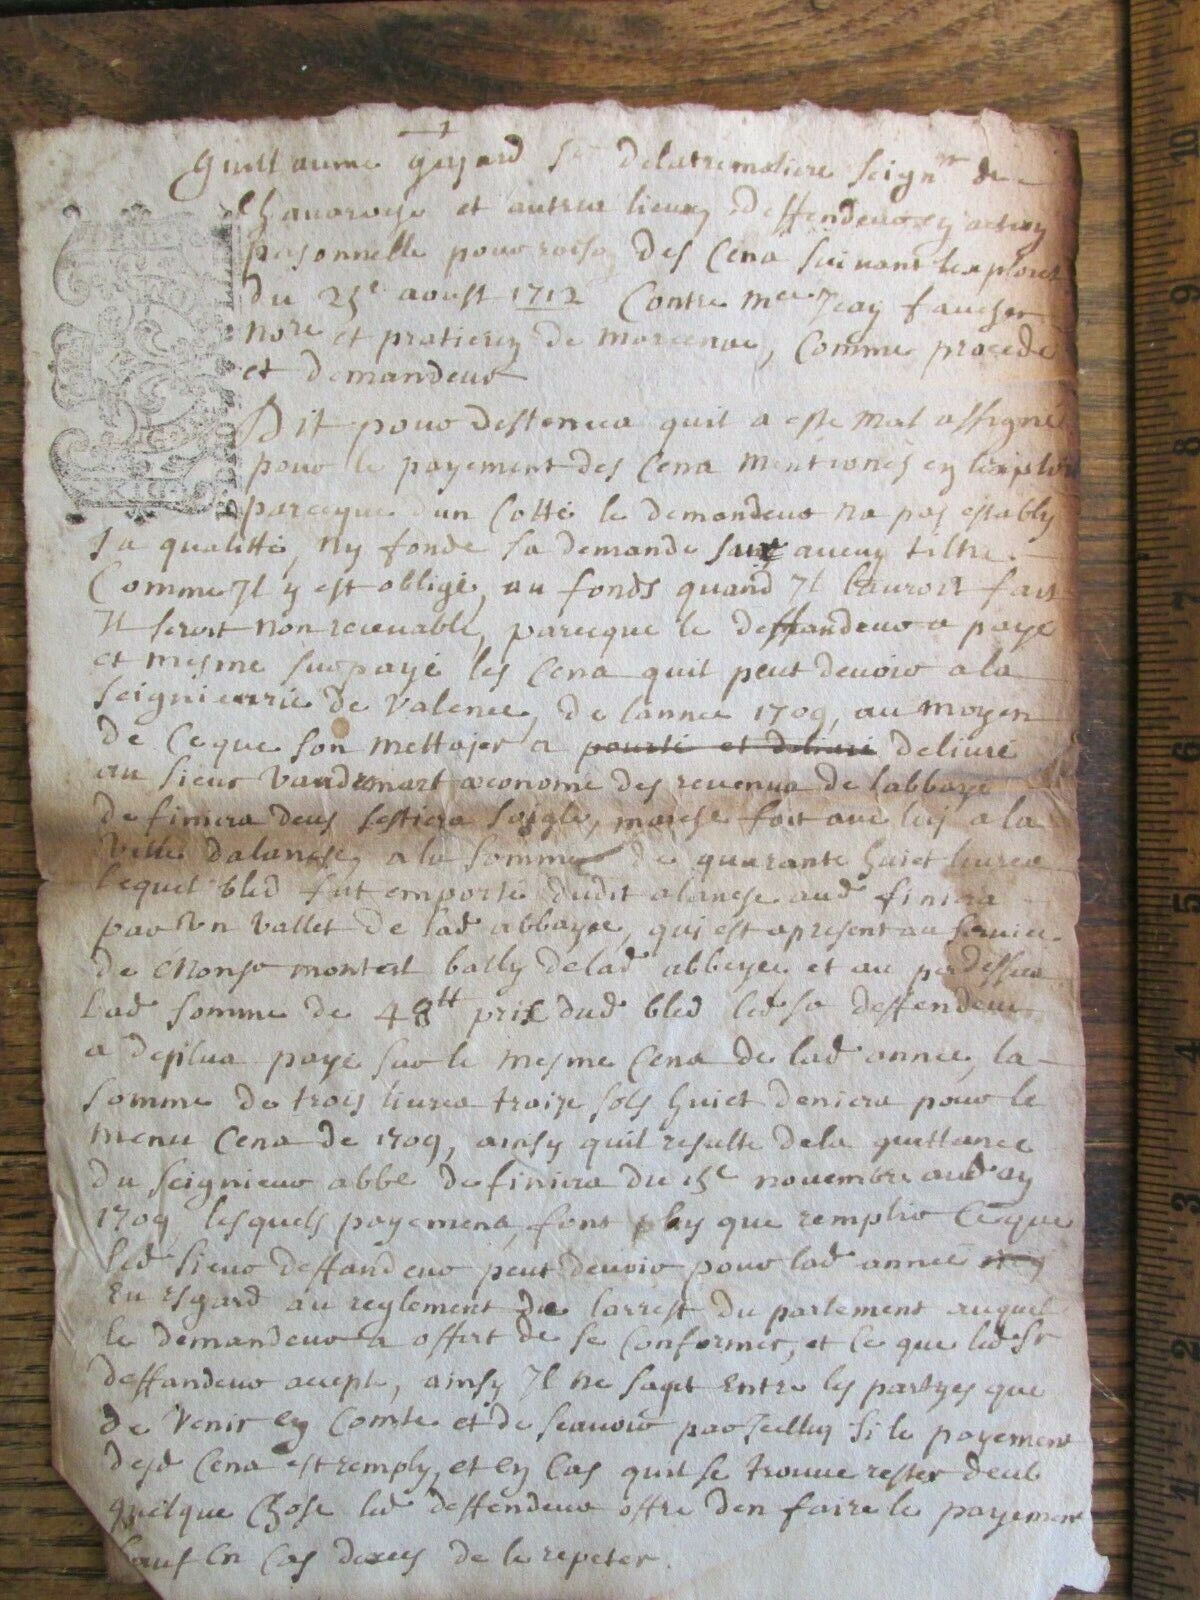 Guillaume Gejard Sr delatremoliere Seignr de
Chauaroche et autres lieux deffendeur en action
personnelle pour raison des Cens suivant lexploit
du 25e aoust 1712 Contre Mee Jean faucher
nore et praticien de marcenac, Comme procede
et demandeur
Dit pour deffences quil a este mal assigné
pour le payement des Cens mentionés en lexploit
parceque dun Cotté le demandeur na pas estably
sa qualitté, ny fondé sa demande sur aucun tiltre
Comme Jl y est obligé, au fonds quand Jl lauroit fait
Jl seroit non receuable, parceque le deffandeur a payé
et mesme surpayé les Cens quil peut devoir a la
Seignieurrie de Valence, de lannee 1709, au moyen
de Ceque son mettajer a deliuré
au sieur Vaudemart œconome des reuenus de labbaye
de finiers deus sestiers soigle, marche fait avec luy a la
ville dalanche, a la somme de quarante huict liures
lequel bled fut emporté dudit alanche aud finiers
par un Vallet de lad abbaye, qui est apresent au seruice
de Monsr monteil bally delad abbeye, et au pardessus
Lad somme de 48tt prix dud bled led sr deffendeur
a deplus payé sur le mesme Cens de lad annee, la
somme de trois liures traize sols huict deniers pour le
menu Cens de 1709, ainsy quil resulte dela quittance
du seignieur abbé de finiers du 15e nouembre aud an
1709, lesquels payemens, font plus que remplir Ceque
led sieur deffandeur peut devoir pour lad annee
Eu Esgard au reglement de larrest du parlement auquel
le demandeur a offert de se Conformer, et Ce que led sr
deffandeur accepte, ainsy Jl ne sagit Entre les partyes que
de Venir en Comte et de scauoir par Jcelluy si le payement
desd Cens est remply, et en Cas quil se trouue rester deub
quelque Chose led deffendeur offre den faire le payement
sauf en Cas dexces de le repeter.